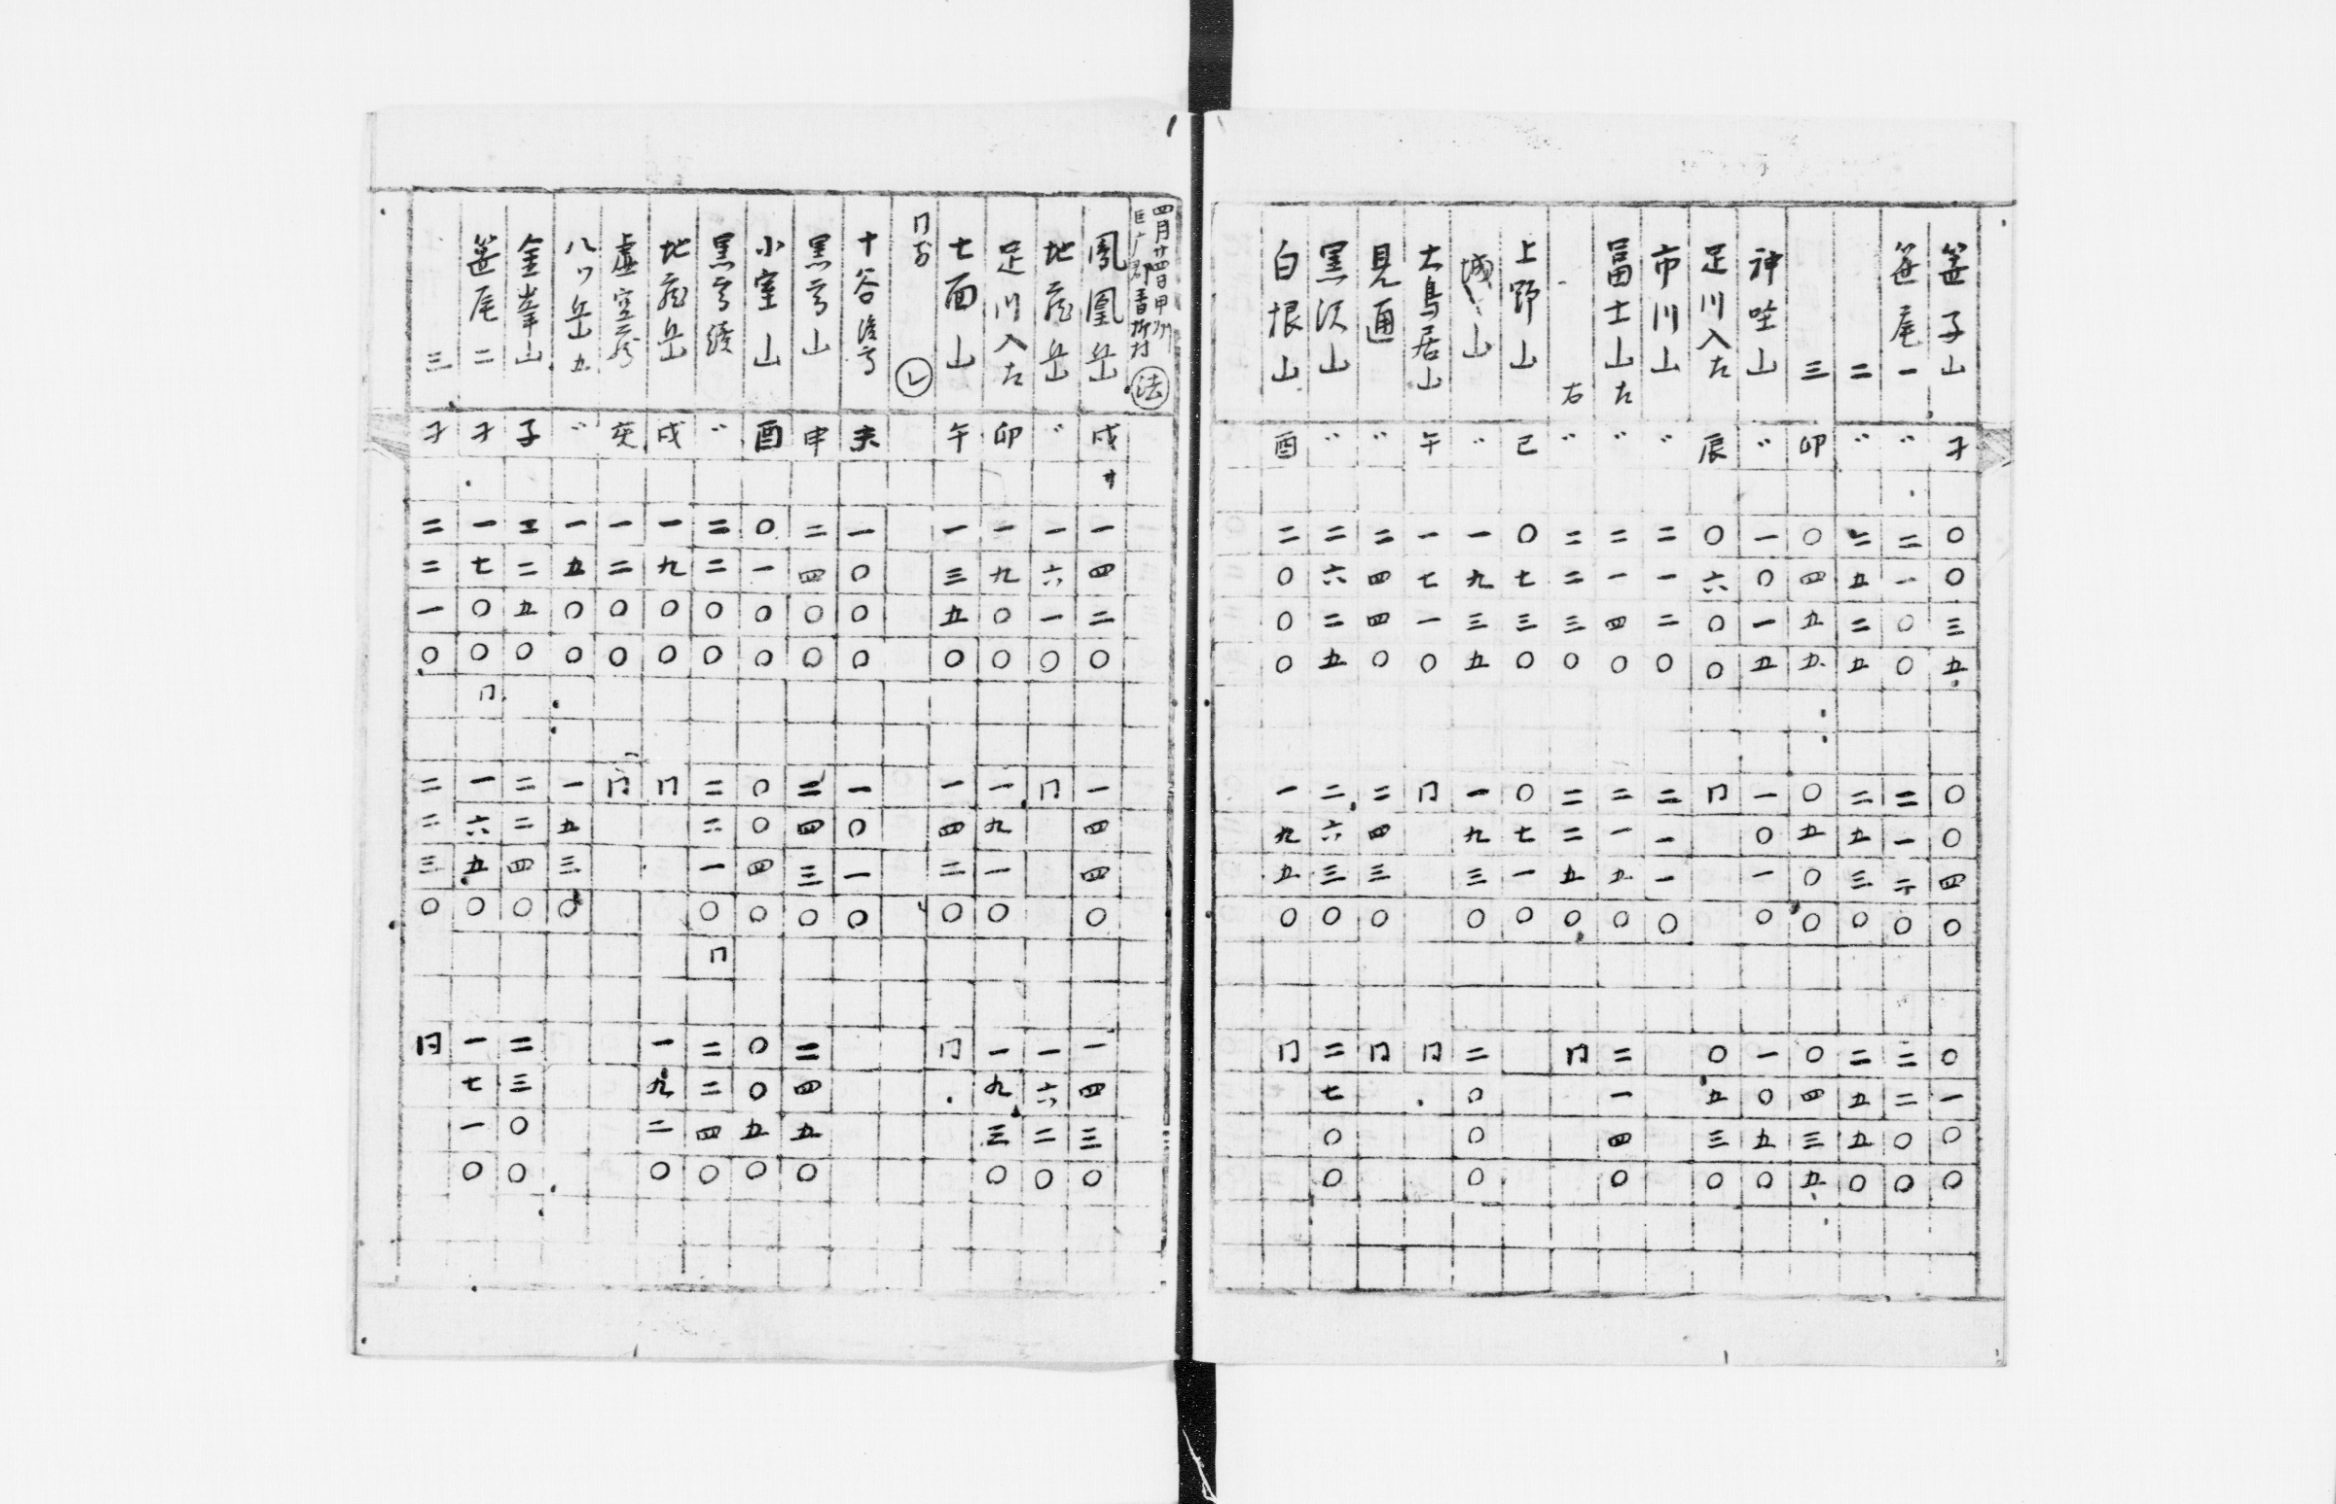 笹子山 子 〇〇三五 〇〇四〇 〇一〇〇
笹尾一 〃 二一〇〇 二一二〇 二二〇〇
二 〃 二五二五 二五三〇 二五五〇
三 卯 〇四五五 〇五〇〇 〇四三五
神座山 〃 一〇一五 一〇一〇 一〇五〇
足川入左 辰 〇六〇〇 同 〇五三〇
市川山 〃 二一二〇 二一一〇
冨士山左 〃 二一四〇 二一五〇 二一四〇
右 〃 二二三〇 二二五〇 同
上野山 巳 〇七三〇 〇七一〇
城山 〃 一九三五 一九三〇 二〇〇〇
大鳥居山 午 一七一〇 同 同
見通 〃 二四四〇 二四三〇 同
黒沢山 〃 二六二五 二六三〇 二七〇〇
白根山 酉 二〇〇〇 一九五〇 同
四月廿四日甲州
巨广郡 村 法
鳳凰岳 戌 一四二〇 一四四〇 一四三〇
地蔵岳 〃 一六一〇 同 一六二〇
足川入左 卯 一九〇〇 一九一〇 一九三〇
七面山 午 一三五〇 一四二〇 同
同所 レ
十谷 未 一〇〇〇 一〇一〇
黒 山 申 二四〇〇 二四三〇 二四五〇
小室山 酉 〇一〇〇 〇〇四〇 〇〇五〇
黒 続 〃 二二〇〇 二二一〇 同 二二四〇
地蔵岳 戌 一九〇〇 同 一九二〇
虚空蔵 亥 一二〇〇 同
八ツ岳 五 〃 一五〇〇 一五三〇
金峯山 子 二二五〇 二二四〇 二三〇〇
笹尾 二 子 一七〇〇 同 一六五〇 一七一〇
三 子 二二一〇 二二三〇 同